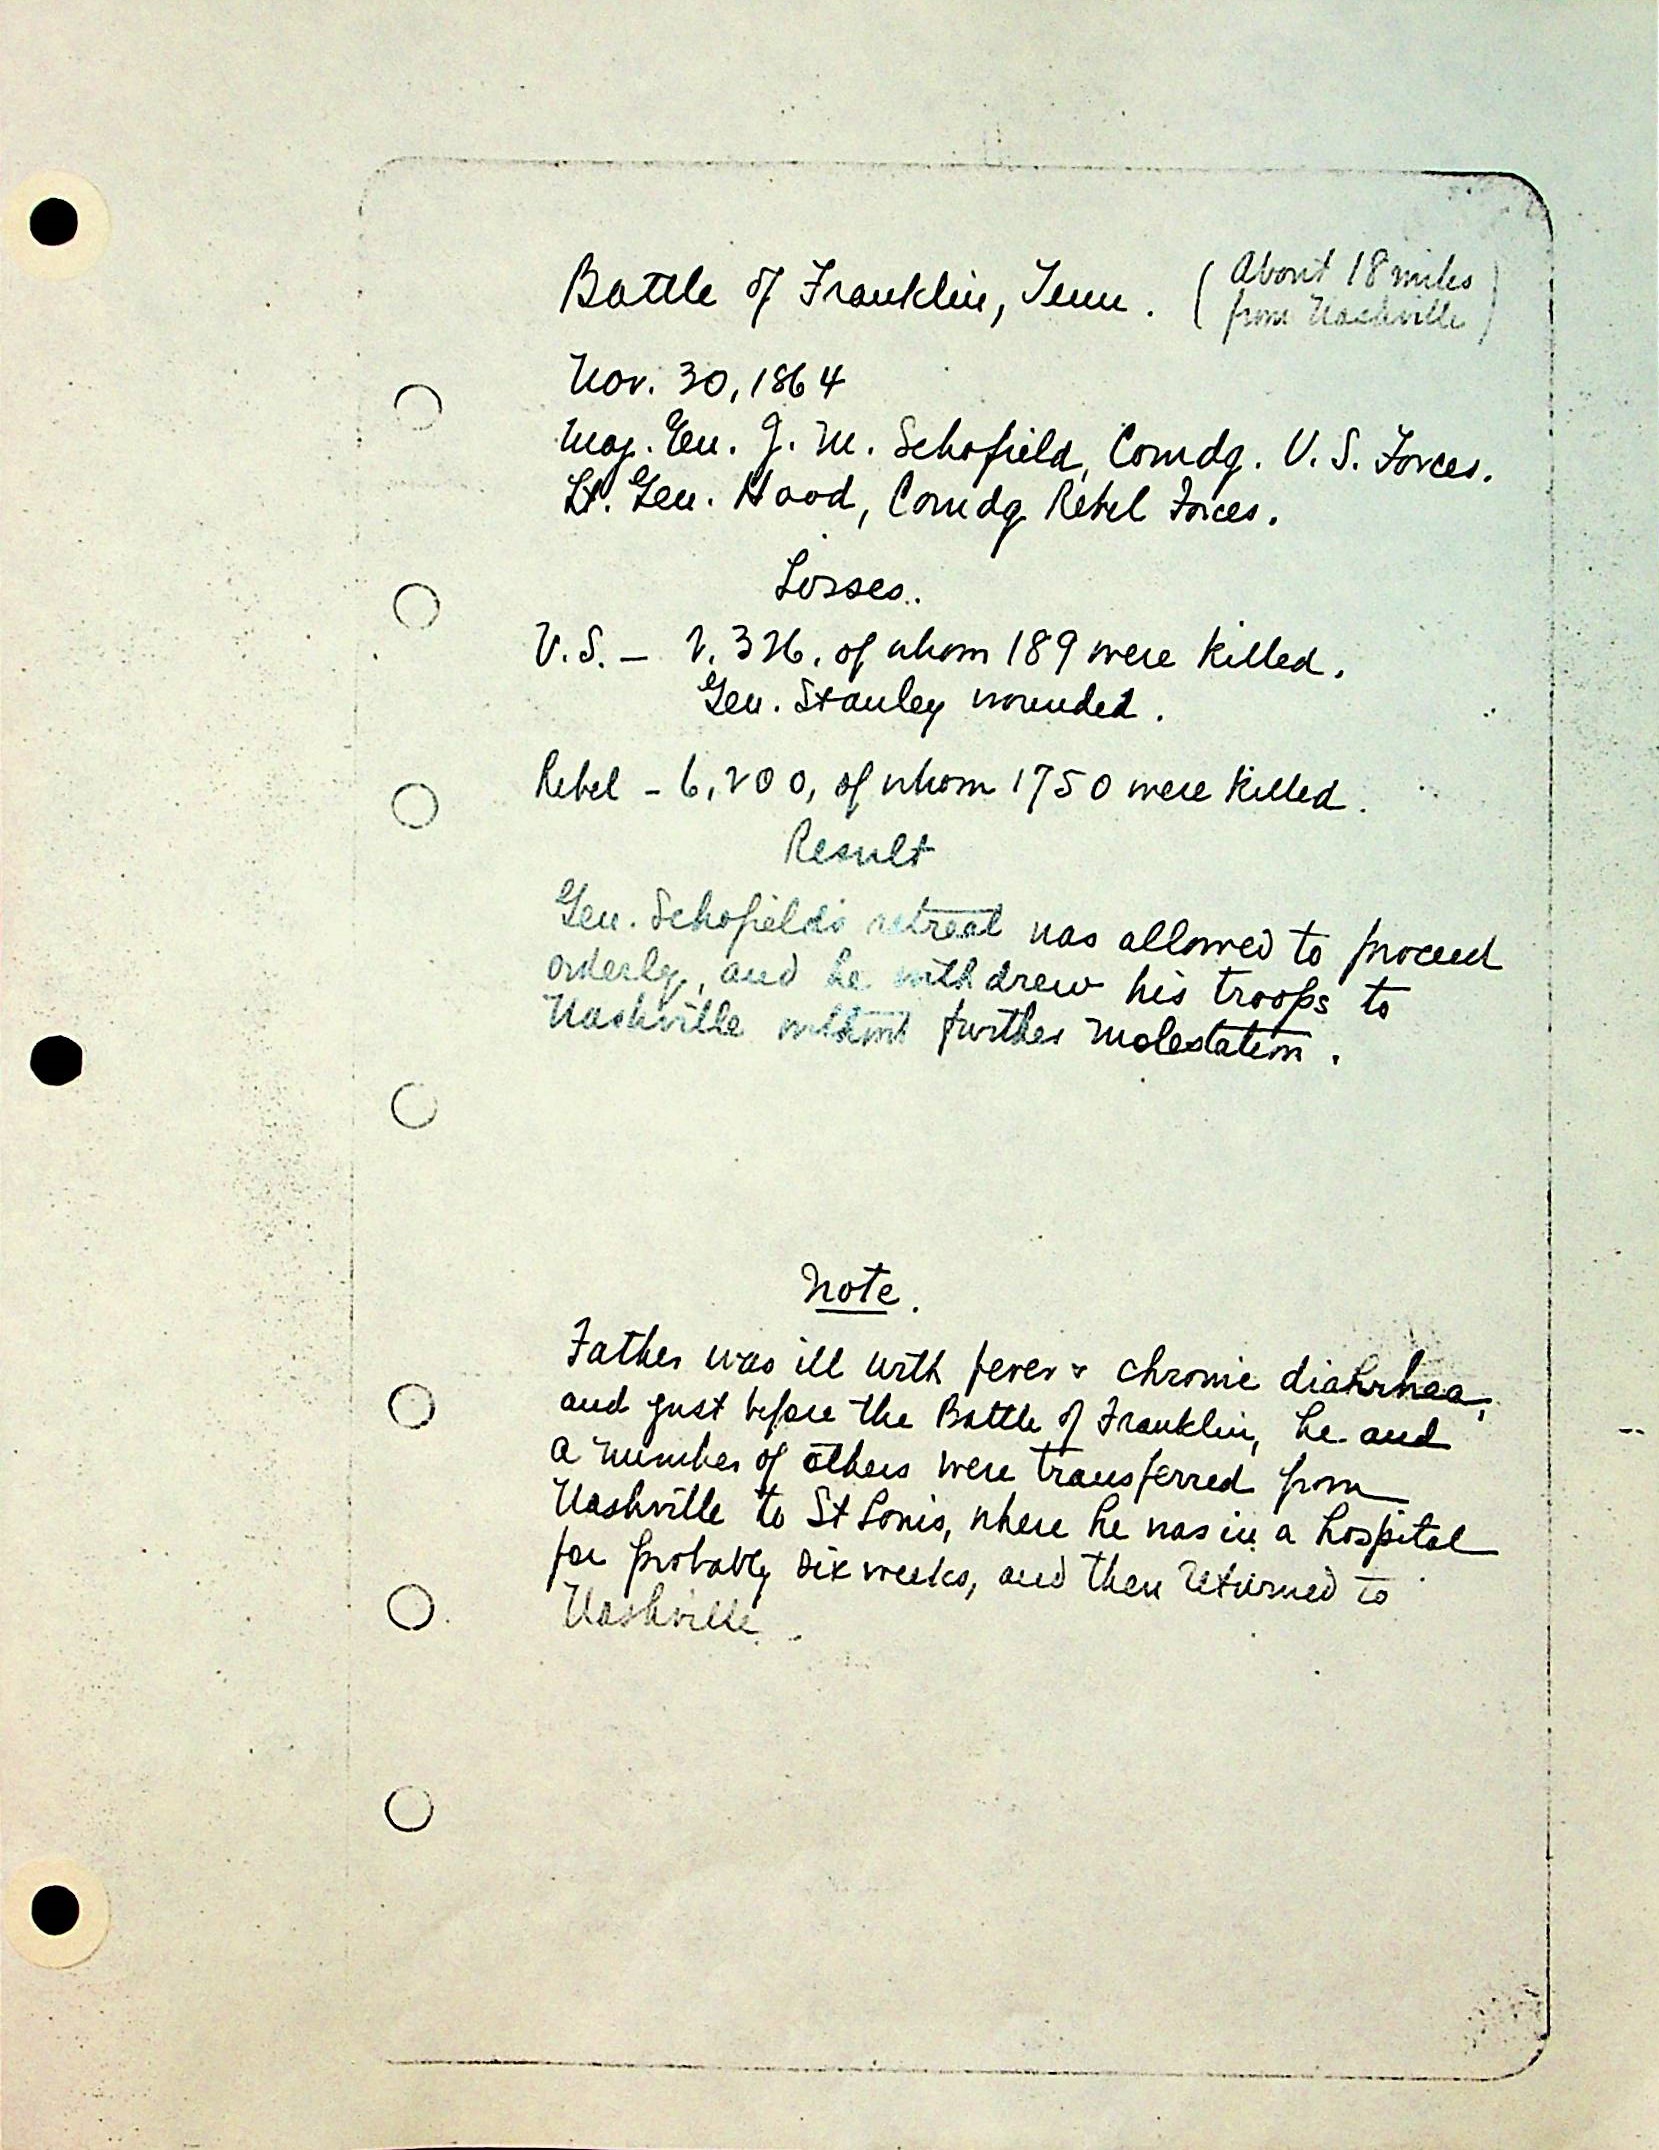 Battle of Franklin, Tenn. (About 18 miles
from Nashville)
Nov. 30, 1864
Maj. Gen. J. M. Schofield, Comdg. U. S. Forces.
Lt. Gen. Hood, Comdg Rebel Forces.
Losses.
U.S. — 2,326, of whom 189 were killed.
Gen. Stanley wounded.
Rebel - 6,200, of whom 1750 were killed.
Result
Gen. Schofield's retreat was allowed to proceed
orderly, and he withdrew his troops to
Nashville without further molestation.
Note.
Father was ill with fever & chronic diahrhaa,
and just before the Battle of Franklin, he and
a number of others were transferred from
Nashville to St Louis, where he was in a hospital
for probably six weeks, and then returned to
Nashville.